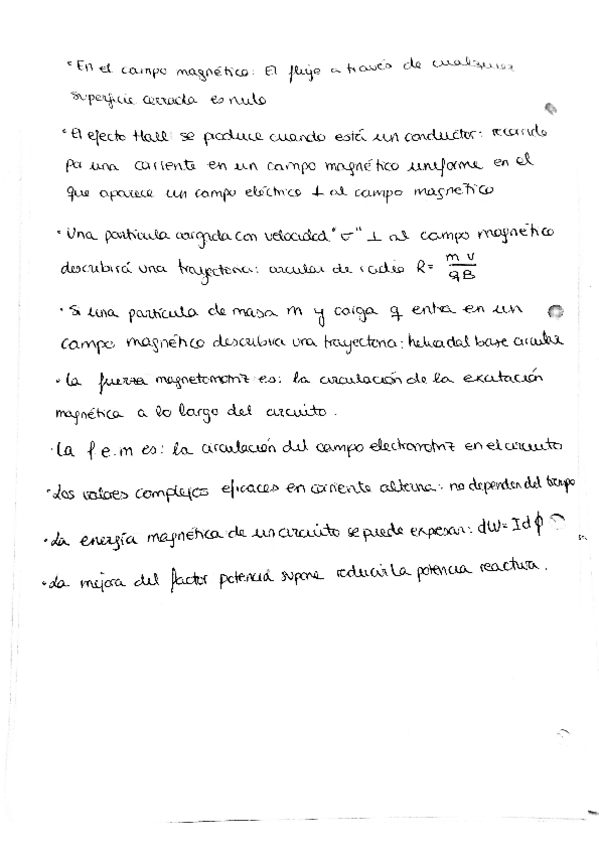 • En el campo magnético: El flujo a través de cualquier
superficie cerrada es nulo
• El efecto Hall: se produce cuando está un conductor: recorrido
por una corriente en un campo magnético uniforme en el
que aparece un campo eléctrico ⊥ al campo magnético
• Una partícula cargada con velocidad "v" ⊥ al campo magnético
describirá una trayectoria: circular de radio R = m v / q B
• Si una partícula de masa m y carga q entra en un
campo magnético describira una trayectoria: helicoidal base circular
• La fuerza magnetomotriz es: la circulación de la excitación
magnética a lo largo del circuito.
• La f e.m es: la circulación del campo electromotriz en el circuito
• Los valores complejos eficaces en corriente alterna: no dependen del tiempo
• La energía magnética de un circuito se puede expresar: dW = I dϕ
• La mejora del factor potencia supone reducir la potencia reactiva.